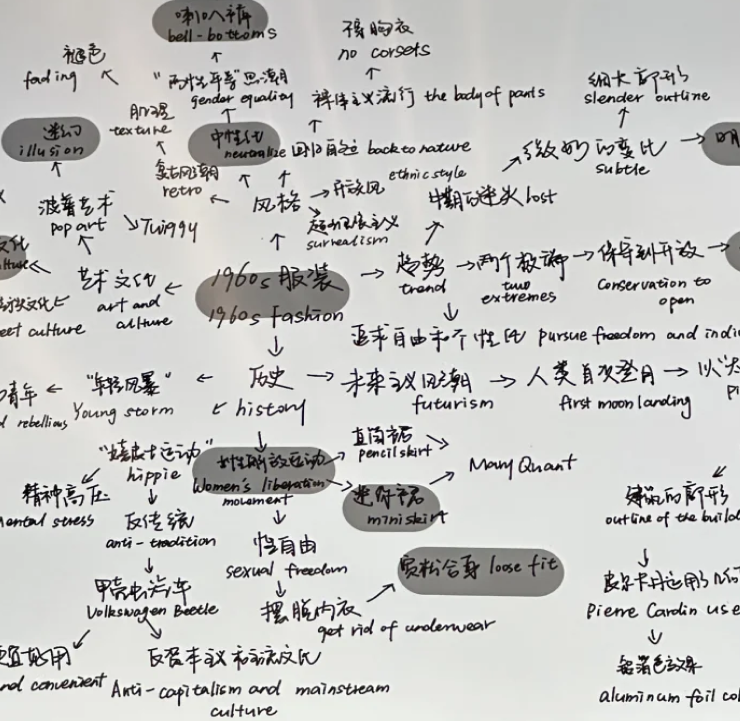 喇叭裤
bell-bottoms
不穿胸衣
no corsets
褪色
fading
"两性平等"思潮
gender equality
裸体主义流行 the body of pants
细长廓形
slender outline
肌理
texture
迷幻
illusion
中性化
neutralize
回归自然 back to nature
微妙的变化
subtle
复古风潮
retro
风格
开放风
ethnic style
中期的迷失 lost
波普艺术
pop art
Twiggy
超现实主义
surrealism
文化
艺术文化
art and
culture
1960s 服装
1960s Fashion
趋势
trend
两个极端
two
extremes
保守到开放
Conservation to
open
街头文化
eet culture
追求自由和个性化 pursue freedom and indi
青年
rebellious
"年轻风暴"
Young storm
历史
history
未来主义风潮
futurism
人类首次登月
first moon landing
以
"嬉皮士运动"
hippie
女性解放运动
Women's liberation
movement
直筒裙
pencil skirt
迷你裙
miniskirt
Mary Quant
精神高压
mental stress
反传统
anti-tradition
性自由
sexual freedom
宽松合身 loose fit
建筑的廓形
outline of the build
甲壳虫汽车
Volkswagen Beetle
摆脱内衣
get rid of underwear
皮尔卡丹运用了几何
Pierre Cardin use
便宜实用
and convenient
反资本主义和主流文化
Anti-capitalism and mainstream
culture
铝箔色效果
aluminum foil col